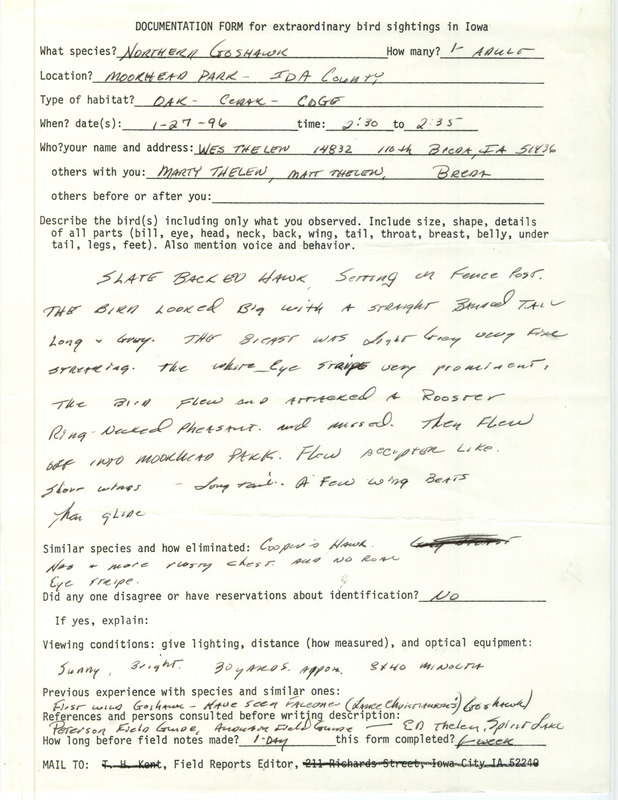 DOCUMENTATION FORM for extraordinary bird sightings in Iowa
What species? Northern Goshawk How many? 1- Adult
Location? Moorhead Park - Ida County
Type of habitat? Oak - Cedar - Edge
When? date(s): 1-27-96 time: 2:30 to 2:35
Who? your name and address: Wes Thelen 14832 110th Breda, IA 51436
others with you: Marty Thelen, Matt Thelen, Breda
others before or after you:
Describe the bird(s) including only what you observed. Include size, shape, details
of all parts (bill, eye, head, neck, back, wing, tail, throat, breast, belly, under
tail, legs, feet). Also mention voice and behavior.
Slate Backed Hawk, Setting on Fence Post.
The Bird Looked Big with a straight Banded Tail
Long & Gray. The Breast was Light Gray very Fine
streaking. The white Eye stripe very prominent,
The Bird Flew and attacked a Rooster
Ring-Necked Pheasant. and missed. Then Flew
off into Moorhead Park. Flew Accipter Like.
Short wings - Long tail. A Few Wing Beats
then glide
Similar species and how eliminated: Cooper's Hawk.
Has a more rusty chest and no real
Eye stripe.
Did any one disagree or have reservations about identification? No
If yes, explain:
Viewing conditions: give lighting, distance (how measured), and optical equipment:
Sunny, Bright. 30 yards. approx. 8x40 Minolta
Previous experience with species and similar ones:
First wild Goshawk - Have seen Falconer (Lance Christiansen's) (Goshawk)
References and persons consulted before writing description:
Peterson Field Guide, Audubon Field Guide - Ed Thelen, Spirit Lake
How long before field notes made? 1-Day this form completed? 1-week
MAIL TO: T. H. Kent, Field Reports Editor, 211 Richards Street, Iowa City, IA 52240